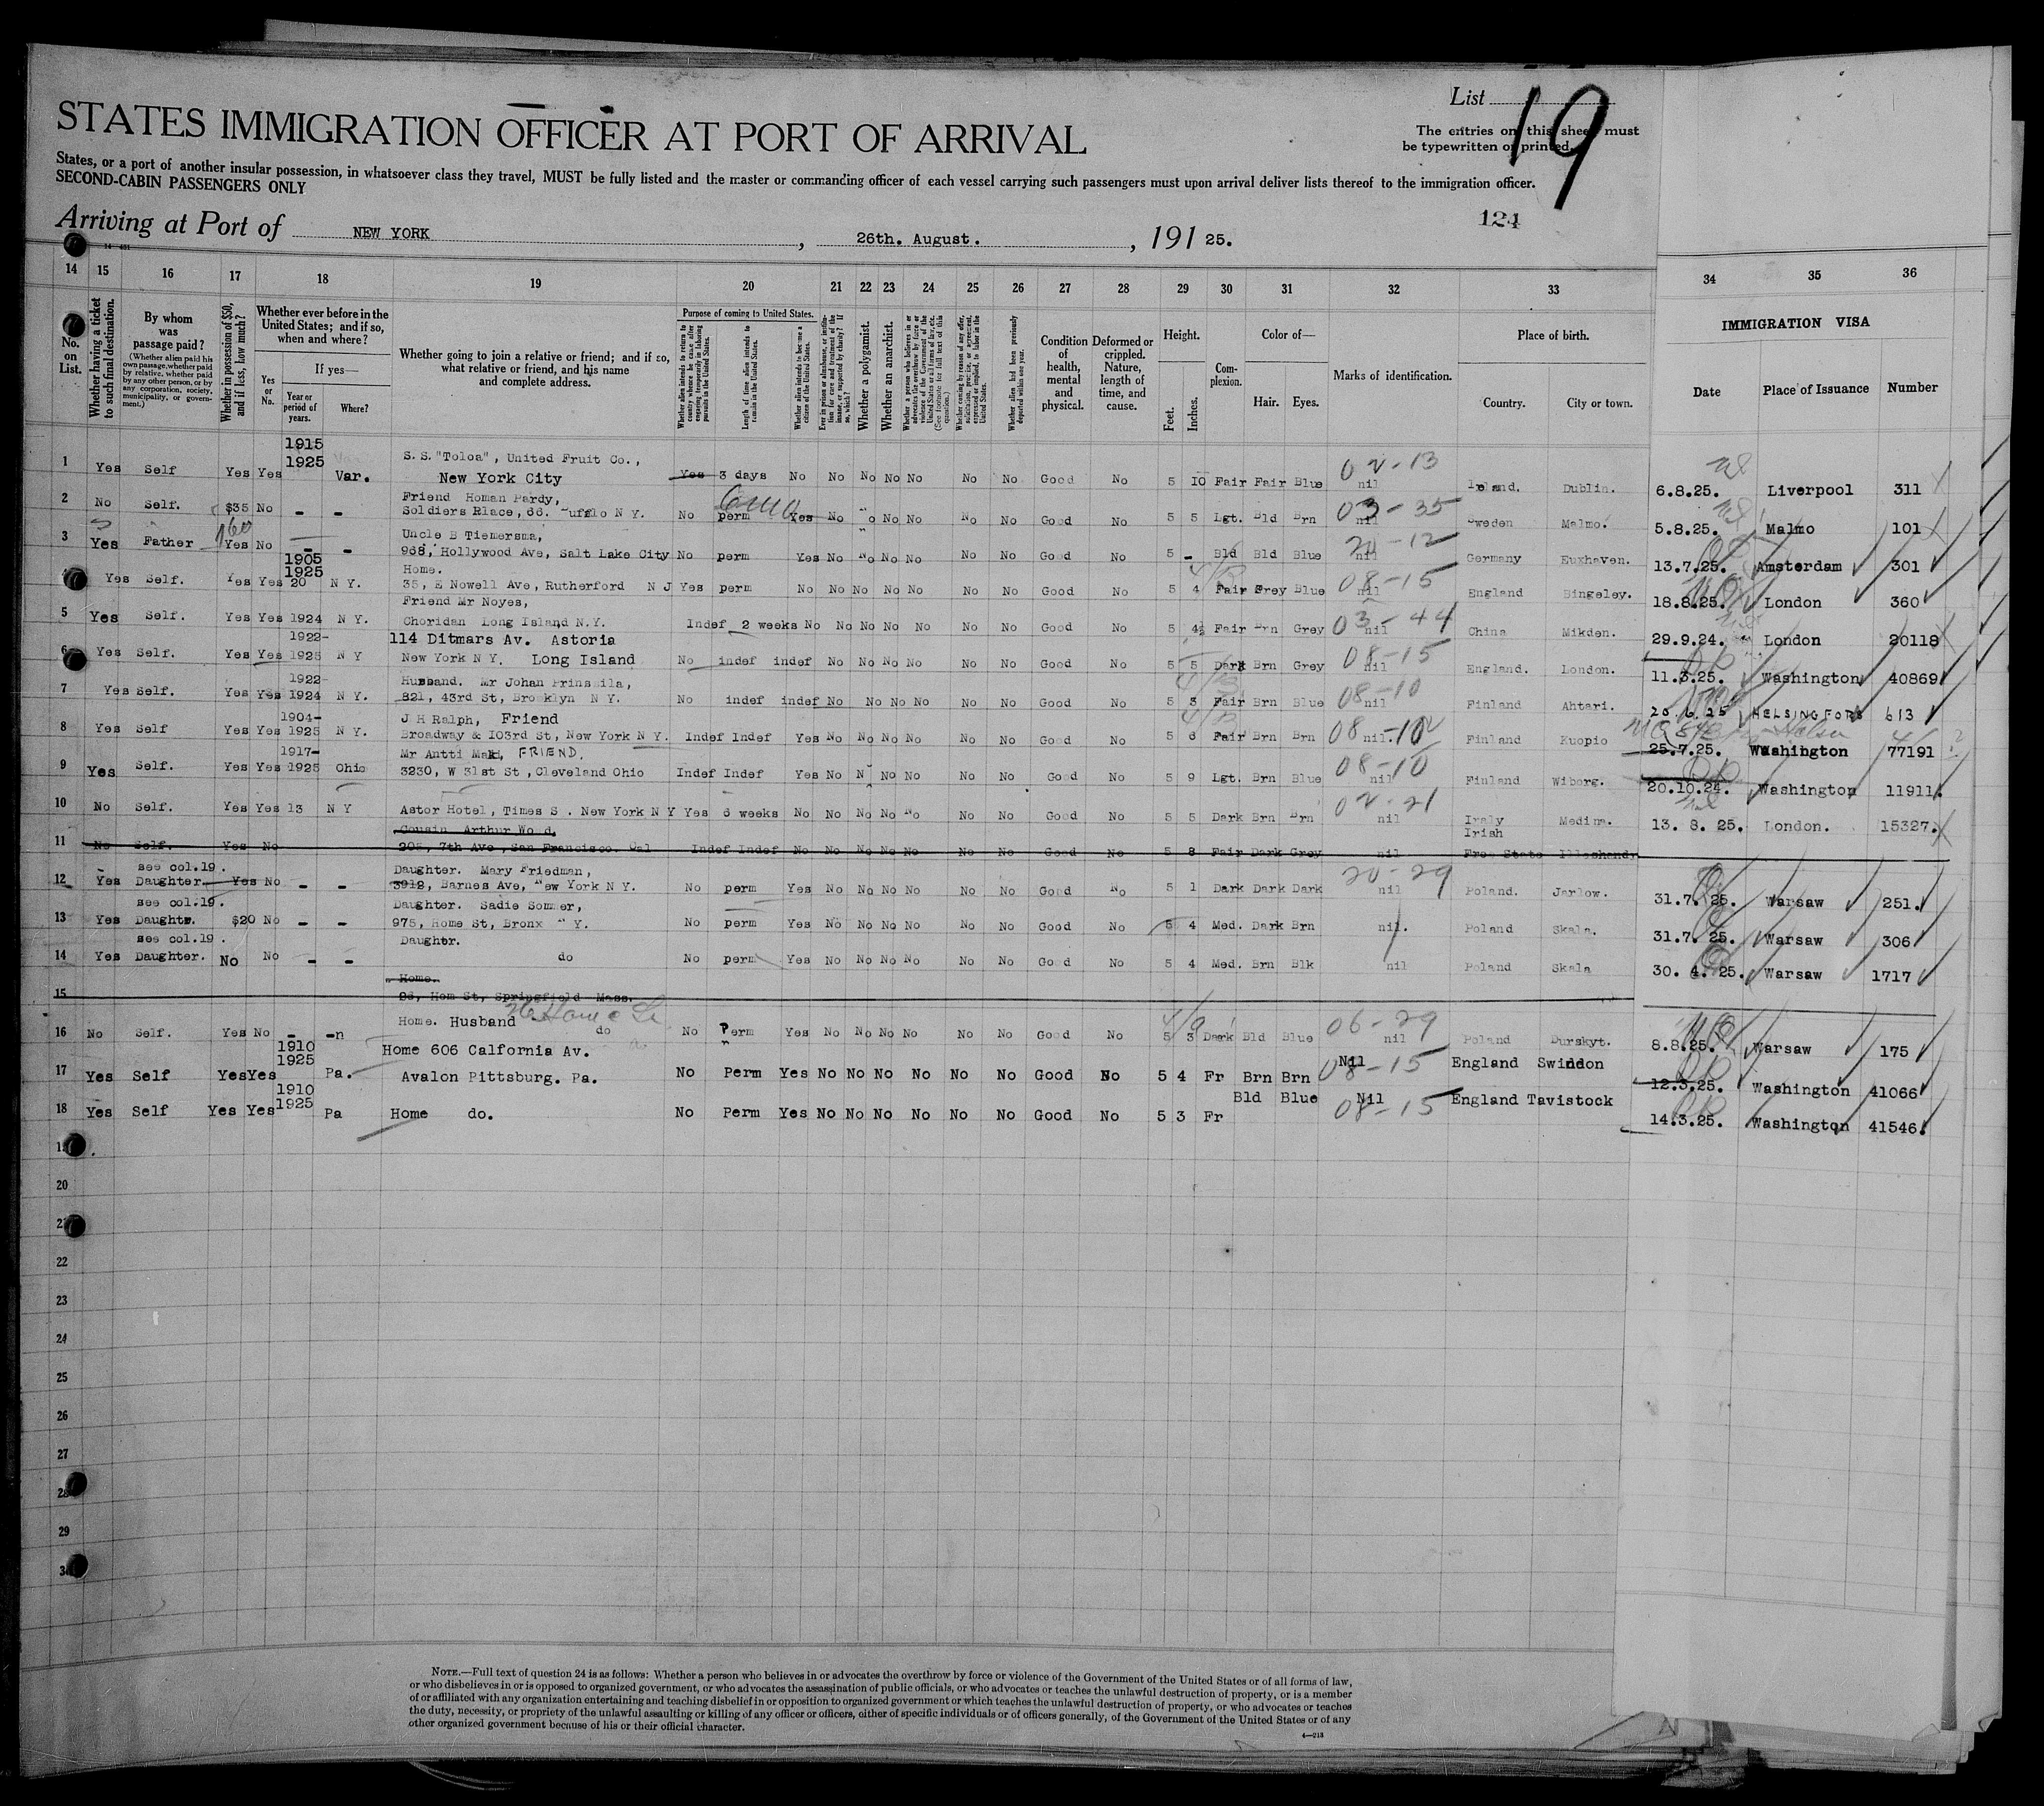 List 19
STATES IMMIGRATION OFFICER AT PORT OF ARRIVAL
The entries on this sheet must
be typewritten or printed.
States, or a port of another insular possession, in whatsoever class they travel, MUST be fully listed and the master or commanding officer of each vessel carrying such passengers must upon arrival deliver lists thereof to the immigration officer.
SECOND-CABIN PASSENGERS ONLY
124
Arriving at Port of NEW YORK, 26th. August., 191 25.
14 15 16 17 18 19 20 21 22 23 24 25 26 27 28 29 30 31 32 33 34 35 36
No. on List.
Whether having a ticket to such final destination.
By whom was passage paid?
(Whether alien paid his own passage, whether paid by relative, whether paid by any other person, or by any corporation, society, municipality, or government.)
Whether in possession of $50, and if less, how much?
Whether ever before in the United States; and if so, when and where?
Yes or No.
If yes—
Year or period of years.
Where?
Whether going to join a relative or friend; and if so, what relative or friend, and his name and complete address.
Purpose of coming to United States.
Whether alien intends to return to country whence he came after engaging temporarily in laboring pursuits in the United States.
Length of time alien intends to remain in the United States.
Whether alien intends to become a citizen of the United States.
Ever in prison or almshouse, or institution for care and treatment of the insane, or supported by charity? If so, which?
Whether a polygamist.
Whether an anarchist.
Whether a person who believes in or advocates the overthrow by force or violence of the Government of the United States or all forms of law, etc. (See footnote for full text of this question.)
Whether coming by reason of any offer, solicitation, promise, or agreement, expressed or implied, to labor in the United States.
Whether alien had been previously deported within one year.
Condition of health, mental and physical.
Deformed or crippled. Nature, length of time, and cause.
Height.
Feet. Inches.
Complexion.
Color of—
Hair. Eyes.
Marks of identification.
Place of birth.
Country. City or town.
IMMIGRATION VISA
Date Place of Issuance Number
1 Yes Self Yes Yes 1915 1925 Var. S.S."Toloa", United Fruit Co., New York City Yes 3 days No No No No No No No Good No 5 10 Fair Fair Blue nil 02-13 Ireland. Dublin. 6.8.25. Liverpool 311
2 No Self. $35 No - - Friend Homan Pardy, Soldiers Rlace, 66. uffalo N Y. No perm 6 mo Yes No No No No No No Good No 5 5 Lgt. Bld Brn nil 03-35 Sweden Malmo. 5.8.25. Malmo 101
3 Yes Father Yes 160 No - - Uncle B Tiemersma, 968, Hollywood Ave, Salt Lake City No perm Yes No No No No No No Good No 5 - Bld Bld Blue nil 20-12 Germany Euxhaven. 13.7.25. Amsterdam 301
Yes Self. Yes Yes 1905 1925 20 N Y. Home. 35, E Nowell Ave, Rutherford N J Yes perm No No No No No No No Good No 5 4 Fair Grey Blue nil 08-15 England Bingeley. 18.8.25. London 360
5 Yes Self. Yes Yes 1924 N Y. Friend Mr Noyes, Choridan Long Island N.Y. Indef 2 weeks No No No No No No No Good No 5 4½ Fair Brn Grey nil 03-44 China Mikden. 29.9.24. London 20118
6 Yes Self. Yes Yes 1922- 1925 N Y 114 Ditmars Av. Astoria New York N Y. Long Island No indef indef No No No No No No Good No 5 5 Dark Brn Grey nil 08-15 England. London. 11.3.25. Washington 40869
7 Yes Self. Yes Yes 1922- 1924 N Y. Husband. Mr Johan Prinssila, 821, 43rd St, Brooklyn N Y. No indef indef No No No No No No Good No 5 3 Fair Brn Blue nil 08-10 Finland Ahtari. 20.6.25 HELSINGFORS 613
8 Yes Self Yes Yes 1904- 1925 N Y. J H Ralph, Friend Broadway & 103rd St, New York N Y. Indef Indef Yes No No No No No No Good No 5 6 Fair Brn Brn nil. 08-10 Finland Kuopio 25.7.25. Washington 77191
9 Yes Self. Yes Yes 1917- 1925 Ohio Mr Antti Maki, FRIEND. 3230, W 31st St, Cleveland Ohio Indef Indef Yes No N No No No No Good No 5 9 Lgt. Brn Blue nil 08-10 Finland Wiborg. 20.10.24. Washington 11911.
10 No Self. Yes Yes 13 N Y Astor Hotel, Times S . New York N Y Yes 6 weeks No No No No No No No Good No 5 5 Dark Brn Brn nil 02-21 Italy Medina. 13. 8. 25. London. 15327.
11 No Self. Yes No Cousin Arthur Wo d, 205, 7th Ave, San Francisco. Cal Indef Indef No No No No No No No Good No 5 8 Fair Dark Grey nil Irish Free State Illeshandy
12 Yes see col.19. Daughter Yes No - - Daughter. Mary Friedman, 3912, Barnes Ave, New York N Y. No perm Yes No No No No No No Good No 5 1 Dark Dark Dark nil 20-29 Poland. Jarlow. 31.7.25. Warsaw 251.
13 Yes see col.19. Daughtr. $20 No - - Daughter. Sadie Sommer, 975, Home St, Bronx N Y. No perm Yes No No No No No No Good No 5 4 Med. Dark Brn nil. Poland Skala. 31.7. 25. Warsaw 306
14 Yes see col.19 . Daughter. No No - - Daughtr. do No perm Yes No No No No No No Good No 5 4 Med. Brn Blk nil Poland Skala 30. 4. 25. Warsaw 1717
15 Home. 96, Hom St, Springfield Mass.
16 No Self. Yes No - -n Home. Husband do No Perm Yes No No No No No No Good No 5 3 Dark Bld Blue nil 06-29 Poland Durskyt. 8.8.25. Warsaw 175
17 Yes Self Yes Yes 1910 1925 Pa. Home 606 Calfornia Av. Avalon Pittsburg. Pa. No Perm Yes No No No No No No Good No 5 4 Fr Brn Brn Nil 08-15 England Swindon 12.3.25. Washington 41066
18 Yes Self Yes Yes 1910 1925 Pa Home do. No Perm Yes No No No No No No Good No 5 3 Fr Bld Blue Nil 08-15 England Tavistock 14.3.25. Washington 41546.
20
22
23
24
25
26
27
28
29
NOTE.—Full text of question 24 is as follows: Whether a person who believes in or advocates the overthrow by force or violence of the Government of the United States or of all forms of law,
or who disbelieves in or is opposed to organized government, or who advocates the assassination of public officials, or who advocates or teaches the unlawful destruction of property, or is a member
of or affiliated with any organization entertaining and teaching disbelief in or opposition to organized government or which teaches the unlawful destruction of property, or who advocates or teaches
the duty, necessity, or propriety of the unlawful assaulting or killing of any officer or officers, either of specific individuals or of officers generally, of the Government of the United States or of any
other organized government because of his or their official character.
4—213